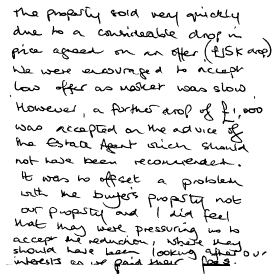 The property sold very quickly
due to a considerable drop in
price agreed on an offer (£15K drop)
We were encouraged to accept
low offer as market was slow.
However, a further drop of £1,000
was accepted on the advice of
the Estate Agent which should
not have been recommended.
It was to offset a problem
with the buyer's property not
our property and I did feel
that they were pressuring us to
accept the reduction, where they
should have been looking after our
interests as we paid their fees.